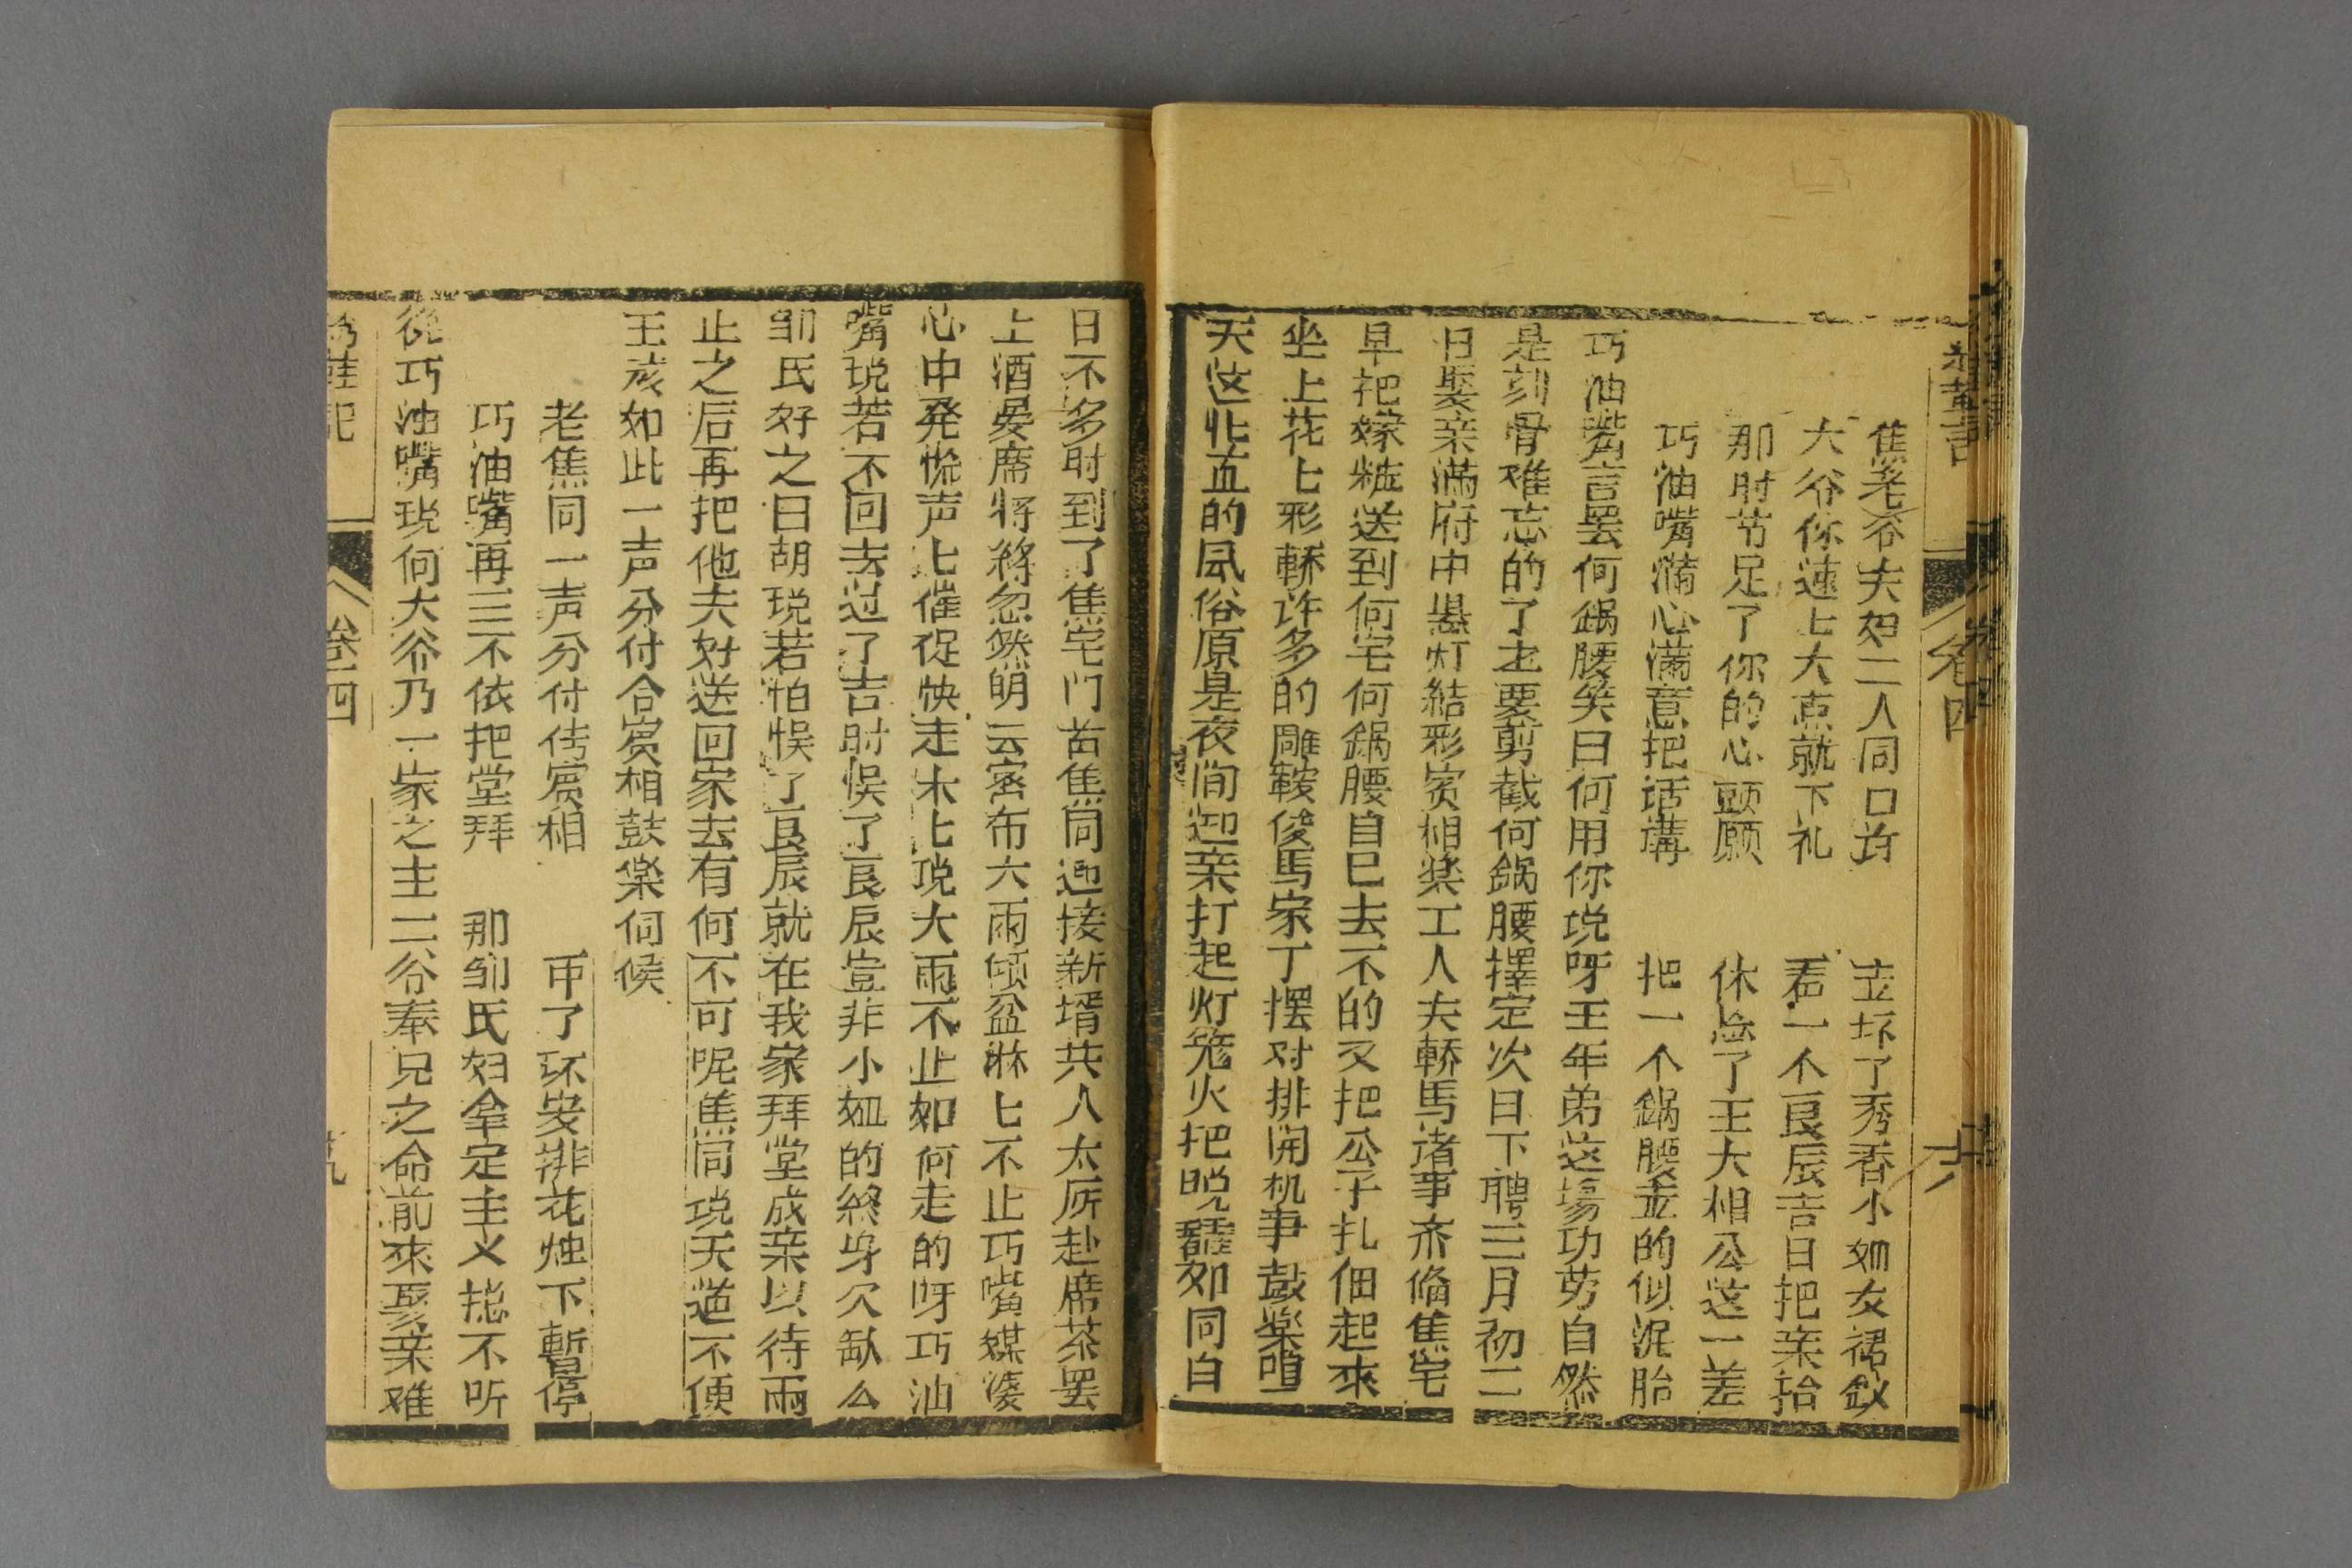 焦老爷夫妇二人同口許　坑坏了秀香小姐女裙釵
大爷你速上大点就下礼　看一个良辰吉日把亲抬
那时节足了你的心头愿　休忘了王大相公这一差
巧油嘴满心满意把话講　把一个鍋腰歪的似泥胎
巧油嘴言罢何鍋腰笑曰何用你说呀王年弟这場功劳自然
是刻骨难忘的了也要剪截何鍋腰擇定次日下聘三月初二
日娶亲满府中悬灯結彩宾相楽工人夫轿馬诸事齐俻焦宅
早把嫁粧送到何宅何鍋腰自己去不的又把公子扎佃起來
坐上花七彩轎许多的雕鞍俊馬家丁摆对排開机事鼓樂喧
天这北直的風俗原是夜间迎亲打起灯笼火把晚 如同白
日不多时到了焦宅门首焦同迎接新壻共入太所赴席茶罢
上酒晏席将終忽然阴云密布大雨傾盆淋七不止巧嘴媒婆
心中発慌声七催促快走木七说大雨不止如何走的呀巧油
嘴说若不回去过了吉时悞了良辰豈非小姐的終身欠缺么
邹氏好之曰胡说若怕悞了良辰就在我家拜堂成亲以待雨
止之后再把他夫妇送回家去有何不可呢焦同说天道不便
王薎如此一声分付合宾相鼓楽伺候
老焦同一声分付传宾相　丫了环安排花烛下暫停
巧油嘴再三不依把堂拜　那邹氏妇拿定主义摠不听
從巧油嘴说何大爷乃一家之主二爷奉兄之命前來娶亲难
卷四